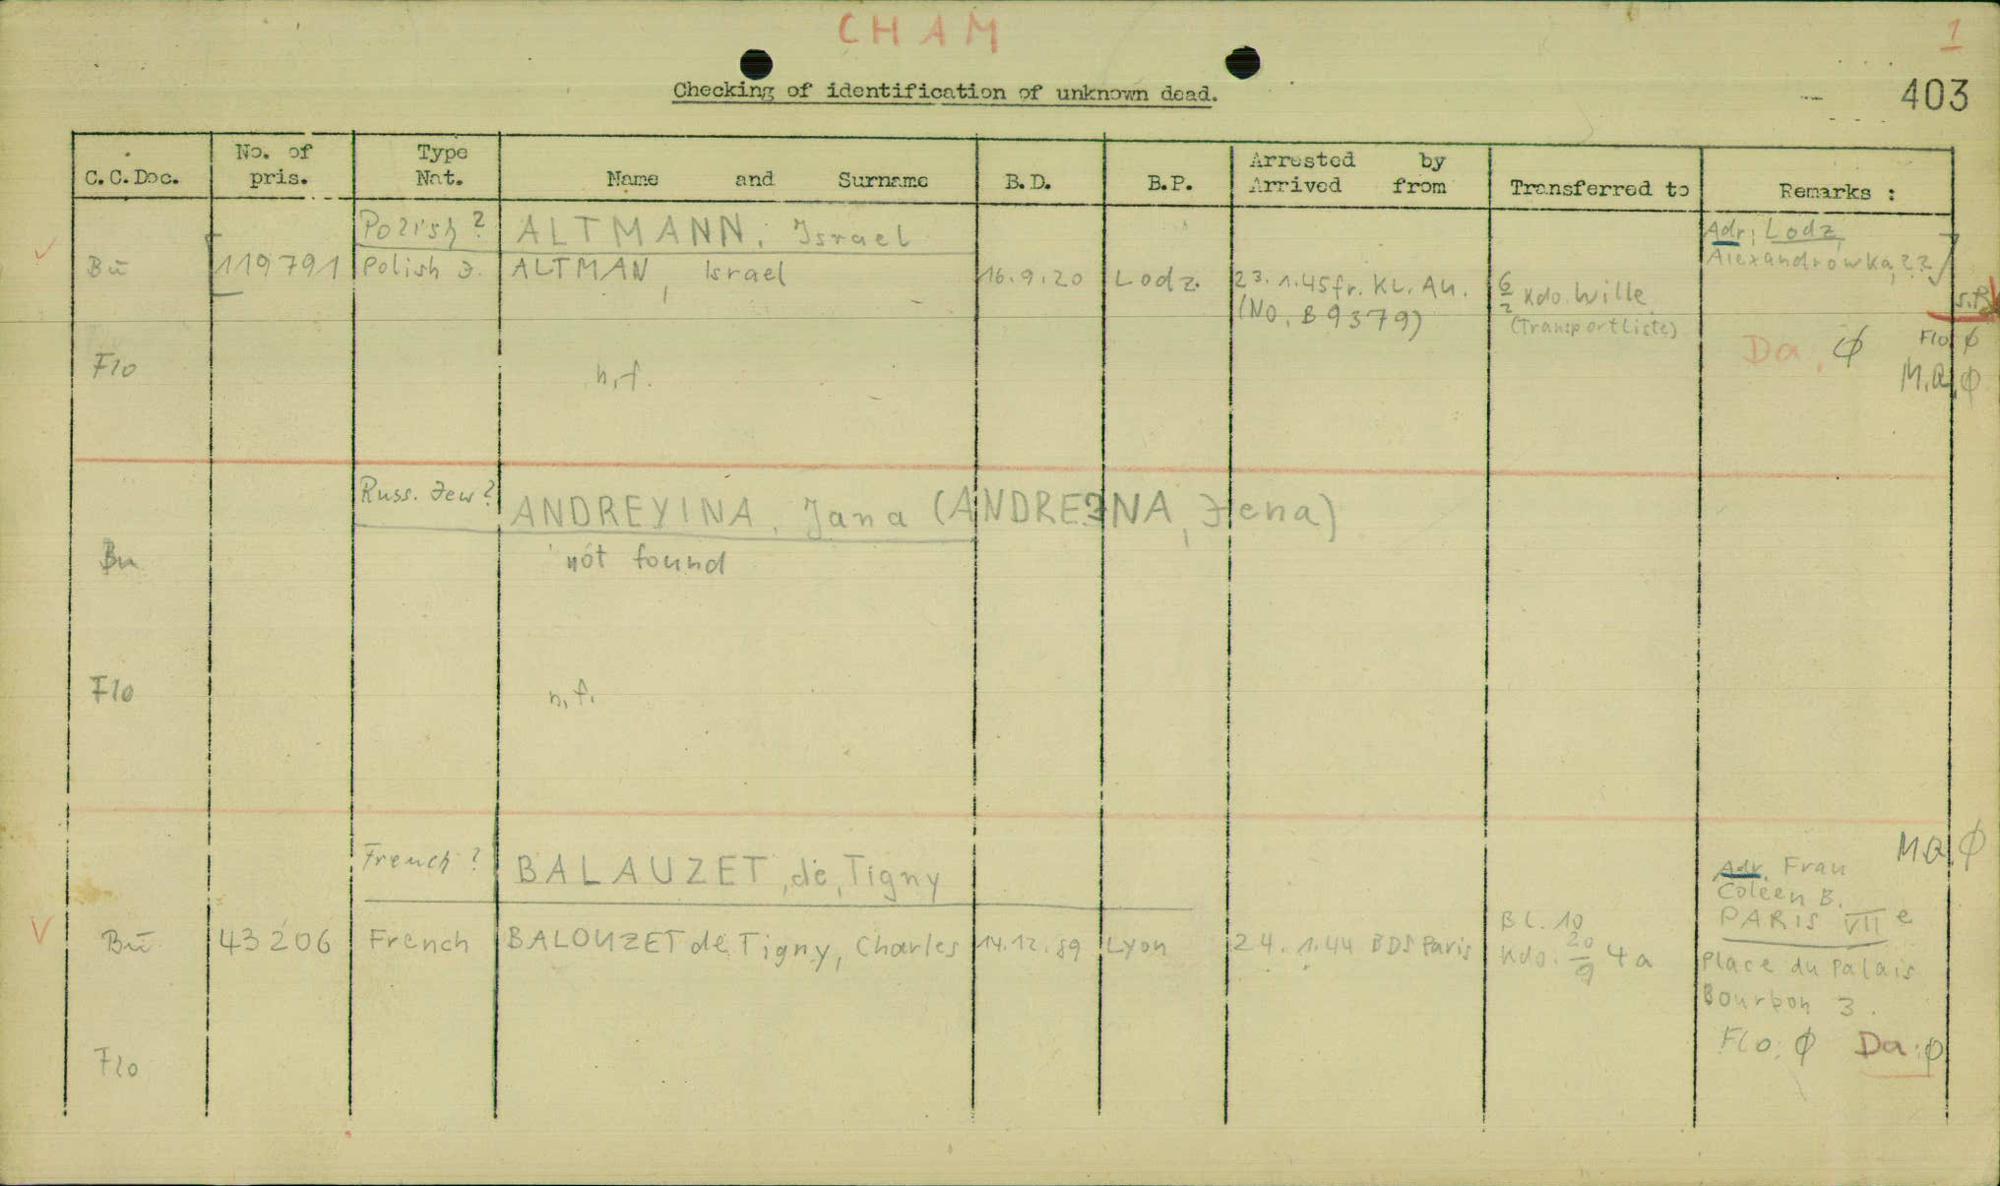 CHAM
1
Checking of identification of unknown dead.
403
C.C.Doc.
No. of pris.
Type Nat.
Name and Surname
B.D.
B.P.
Arrested by
Arrived from
Transferred to
Remarks :
Polish?
ALTMANN, Israel
Adr; Lodz,
Alexandrowka, 22
Bu
119791
Polish J.
ALTMAN, Israel
16.9.20
Lodz.
23.1.45 fr. KL. Au.
(No. B 9379)
6/2 Kdo. Wille
(Transportliste)
Da, ϕ
Flo ϕ
M.Q. ϕ
Flo
n.f.
Russ. Jew?
ANDREYINA, Jana (ANDREJNA, Jena)
Bu
not found
Flo
n.f.
French?
BALAUZET, de, Tigny
M.Q. ϕ
Adr. Frau
Coleen B.
PARIS VII e
Place du Palais
Bourbon 3.
Bu
43206
French
BALOUZET de Tigny, Charles
14.12.89
Lyon
24.1.44 BDS Paris
BL. 10
Kdo. 20/9 4a
Flo: ϕ Da: ϕ
Flo